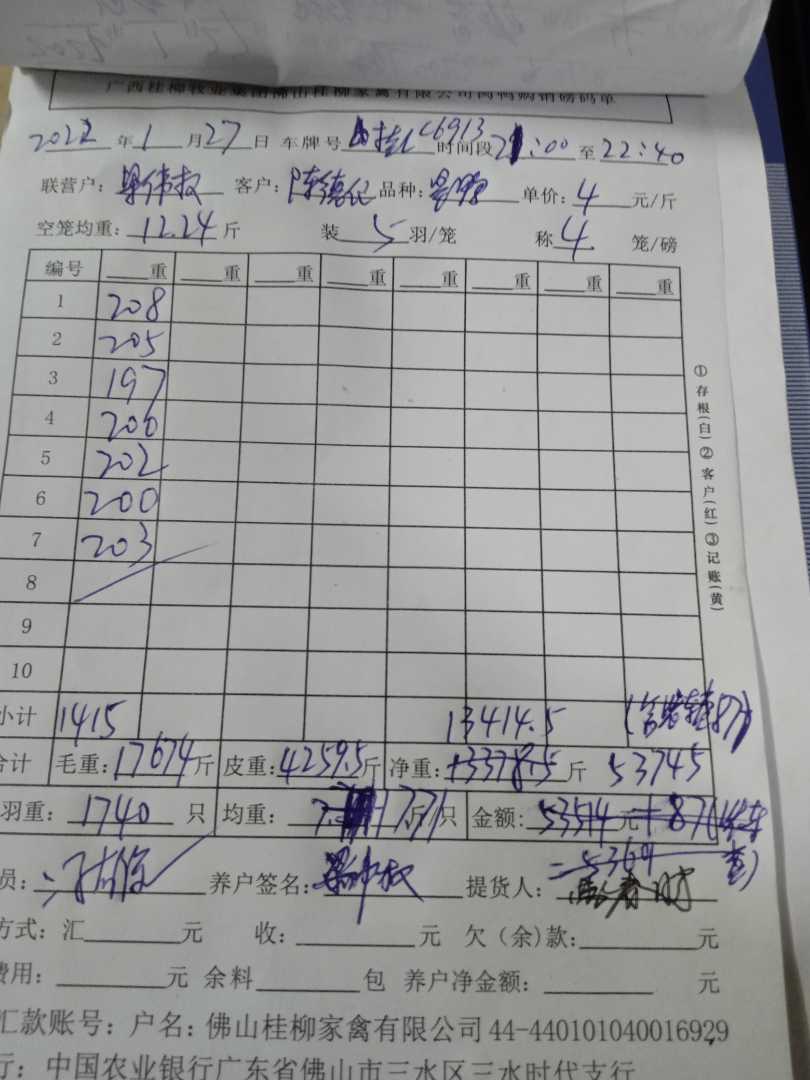 广西桂柳牧业集团佛山桂柳家禽有限公司肉鸭购销磅码单
2022年1月27日 车牌号 C6913 时间段21:00至22:40
联营户:梁伟权 客户:陈德亿 品种: 单价:4元/斤
空笼均重:12.24斤 装5羽/笼 称4笼/磅
编号 重 重 重 重 重 重 重 重
1 208
2 205
3 197
4 206
5 202
6 200
7 203
8
9
10
小计 1415 13414.5
合计 毛重:17674斤 皮重:4259.5斤 净重: 斤 53745
羽重:1740只 均重:7.71斤/只 金额:53514元+87
员: 养户签名:梁伟权 提货人:
方式:汇 元 收: 元 欠(余)款: 元
费用: 元 余料 包 养户净金额: 元
汇款账号:户名:佛山桂柳家禽有限公司44-440101040016929
行:中国农业银行广东省佛山市三水区三水时代支行
①存根(白)②客户(红)③记账(黄)